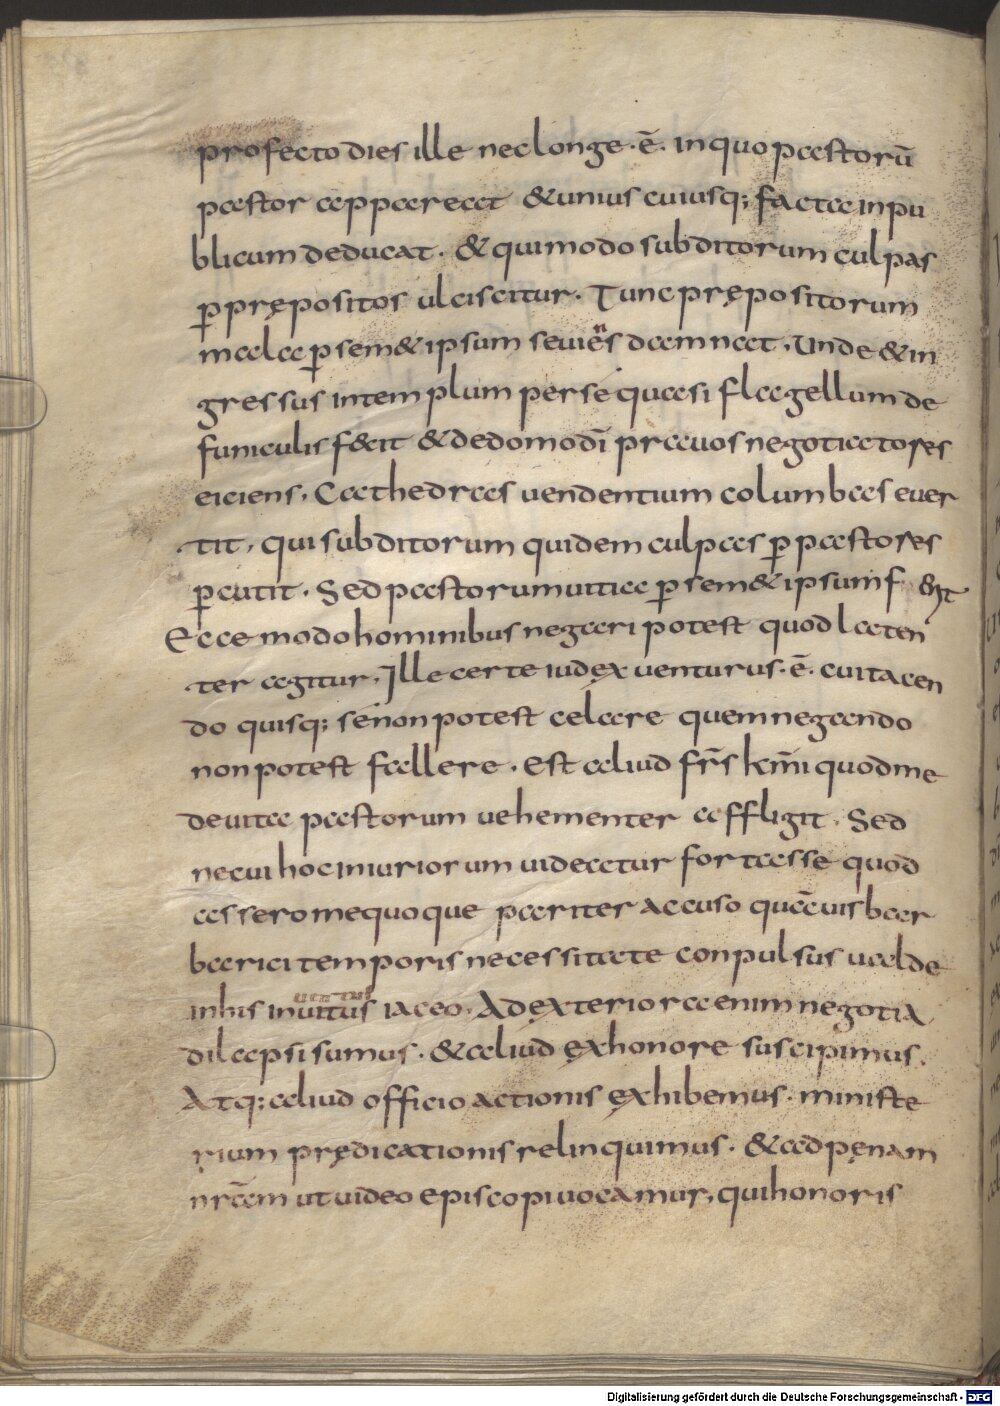 profecto dies ille nec longe · ē · in quo pastorū
pastor appareat & unius cuiusq; facta in pu
blicum deducat · & qui modo subditorum culpas
ꝑ prępositos ulciscitur · Tunc prępositorum
mala ꝑ sem&ipsum seuiēs damnat · Unde & in
gressus in templum per se quasi flagellum de
funiculis fecit & de domo dī prauos negotiatores
eiciens · Cathedras uendentium columbas euer
tit, qui subditorum quidem culpas ꝑ pastores
ꝑcutit · Sed pastorum uitia ꝑ sem&ipsum f
Ecce modo hominibus negari potest quod laten
ter agitur, Ille certe iudęx uenturus · ē · cui tacen
do quisq; se non potest celare quem negando
non potest fallere · Est aliud frs̄ km̄i quod me
de uita pastorum uehementer affligit · Sed
ne cui hoc iniuriorum uideatur fortasse quod
assero me quoque pariter accuso quāuis bar
barici temporis necessitate conpulsus ualde
in his inuitus iaceo · Ad exteriora enim negotia
dilapsi sumus · & aliud ęx honore suscipimus ·
Atq; aliud officio actionis ęxhibemus · ministe
rium prędicationis relinquimus · & ad pęnam
nrām ut uideo episcopi uocamur, qui honoris
Digitalisierung gefördert durch die Deutsche Forschungsgemeinschaft - DFG